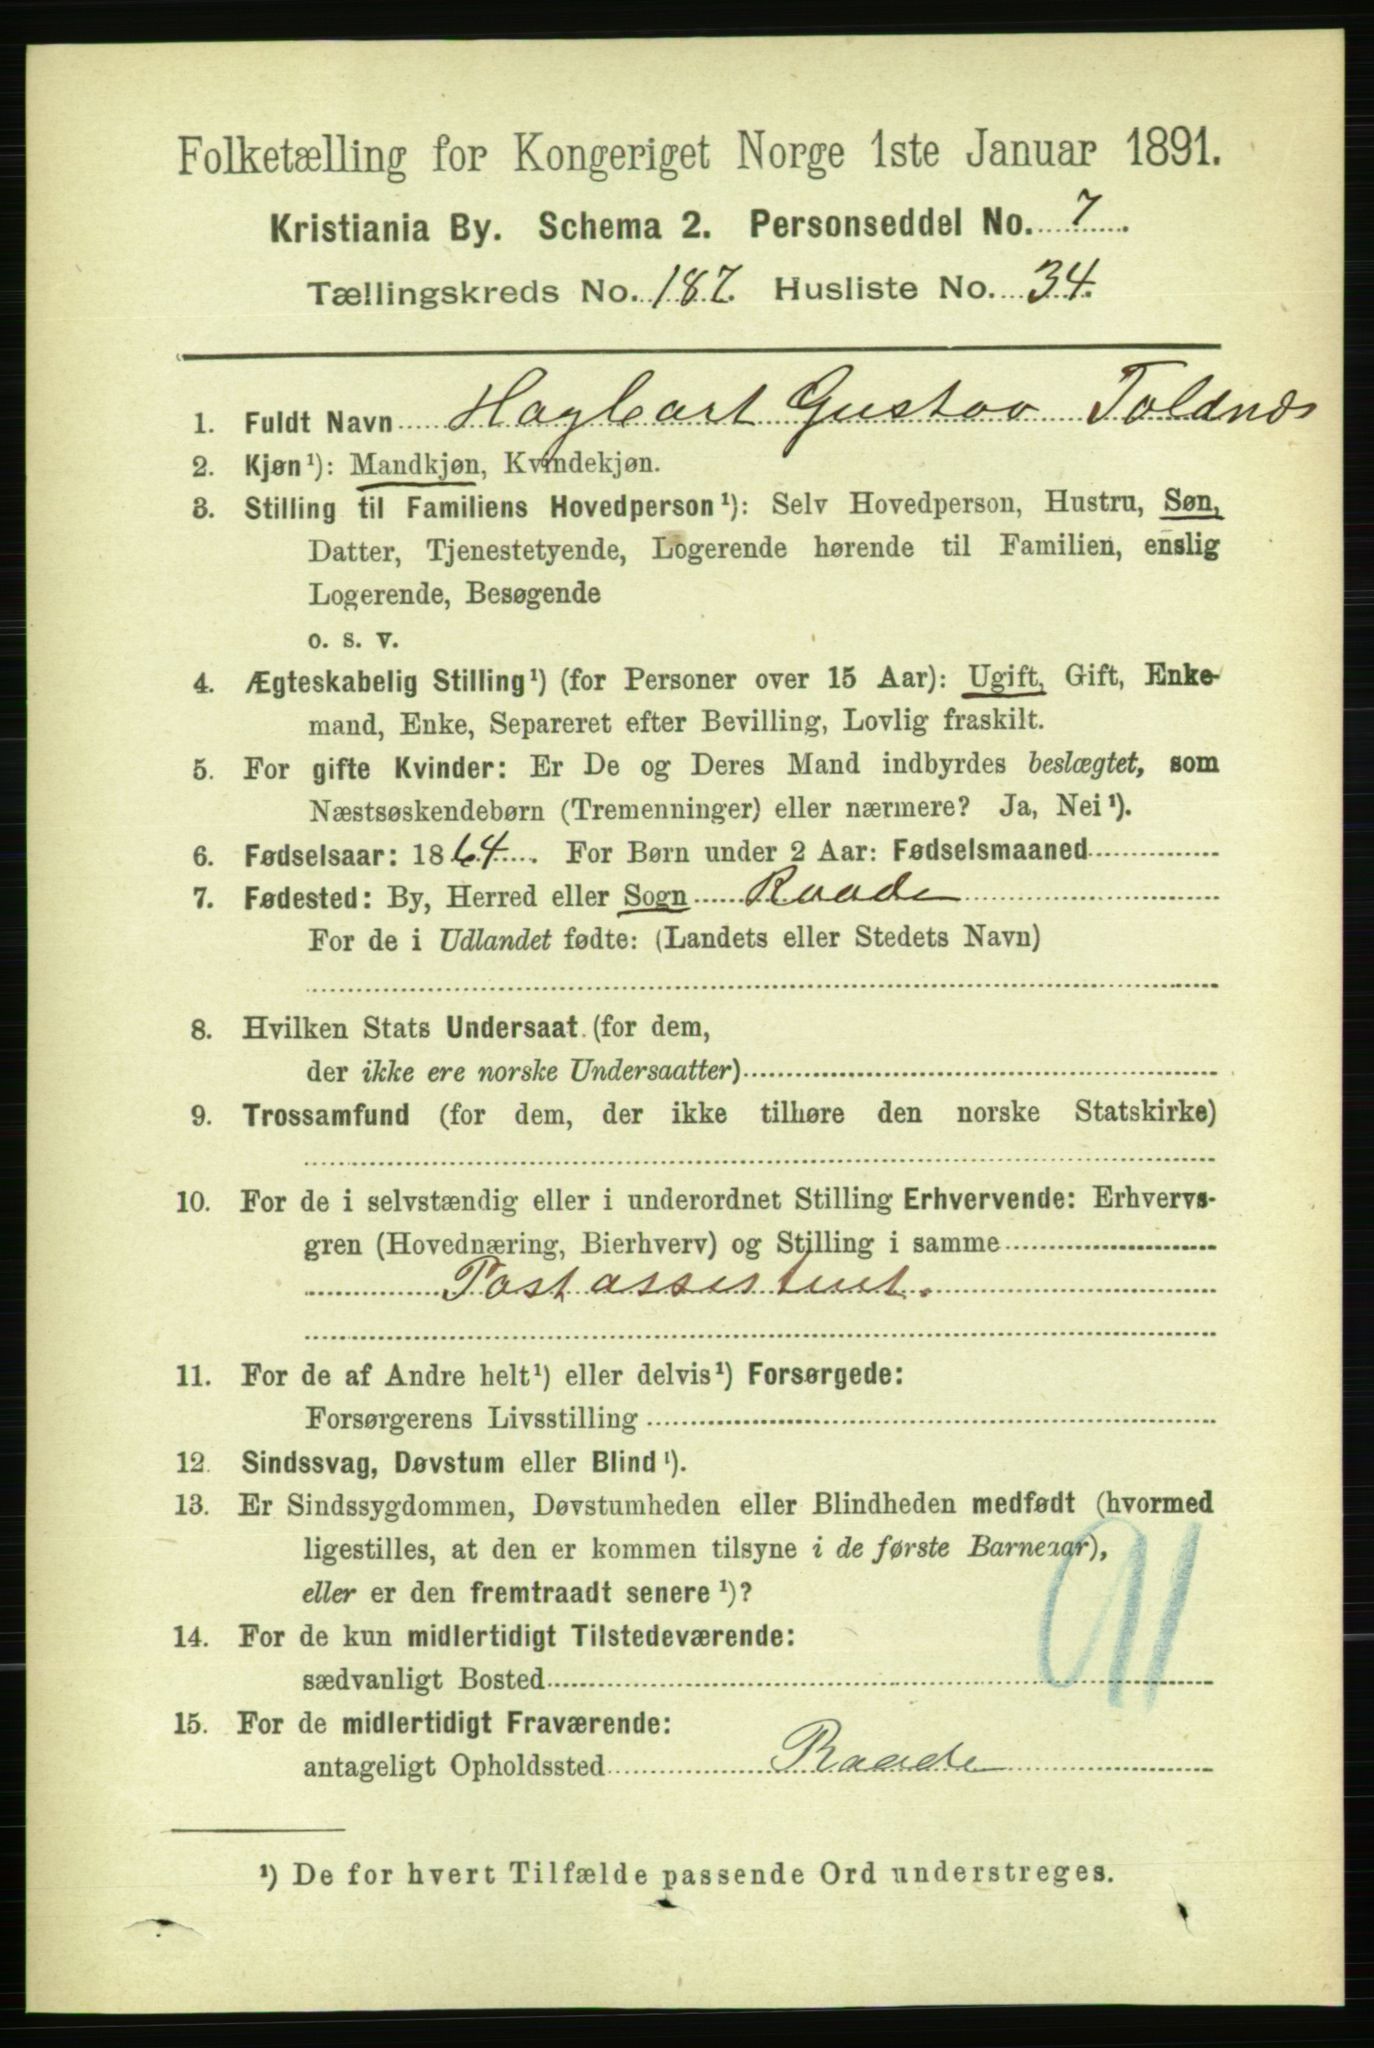 Folketælling for Kongeriget Norge 1ste Januar 1891.
Kristiania By. Schema 2. Personseddel No. 7.
Tællingskreds No. 187. Husliste No. 34.
1. Fuldt Navn Hagbart Gustav Toldnæs
2. Kjøn¹): Mandkjøn, Kvindekjøn.
3. Stilling til Familiens Hovedperson¹): Selv Hovedperson, Hustru, Søn,
Datter, Tjenestetyende, Logerende hørende til Familien, enslig
Logerende, Besøgende
o. s. v.
4. Ægteskabelig Stilling¹) (for Personer over 15 Aar): Ugift, Gift, Enke-
mand, Enke, Separeret efter Bevilling, Lovlig fraskilt.
5. For gifte Kvinder: Er De og Deres Mand indbyrdes beslægtet, som
Næstsøskendebørn (Tremenninger) eller nærmere? Ja, Nei¹).
6. Fødselsaar: 1864. For Børn under 2 Aar: Fødselsmaaned
7. Fødested: By, Herred eller Sogn Raade
For de i Udlandet fødte: (Landets eller Stedets Navn)
8. Hvilken Stats Undersaat (for dem,
der ikke ere norske Undersaatter)
9. Trossamfund (for dem, der ikke tilhøre den norske Statskirke)
10. For de i selvstændig eller i underordnet Stilling Erhvervende: Erhvervs-
gren (Hovednæring, Bierhverv) og Stilling i samme
Postassistent.
11. For de af Andre helt¹) eller delvis¹) Forsørgede:
Forsørgerens Livsstilling
12. Sindssvag, Døvstum eller Blind¹).
13. Er Sindssygdommen, Døvstumheden eller Blindheden medfødt (hvormed
ligestilles, at den er kommen tilsyne i de første Barneaar),
eller er den fremtraadt senere¹)?
14. For de kun midlertidigt Tilstedeværende:
sædvanligt Bosted
15. For de midlertidigt Fraværende:
antageligt Opholdssted Raade
¹) De for hvert Tilfælde passende Ord understreges.